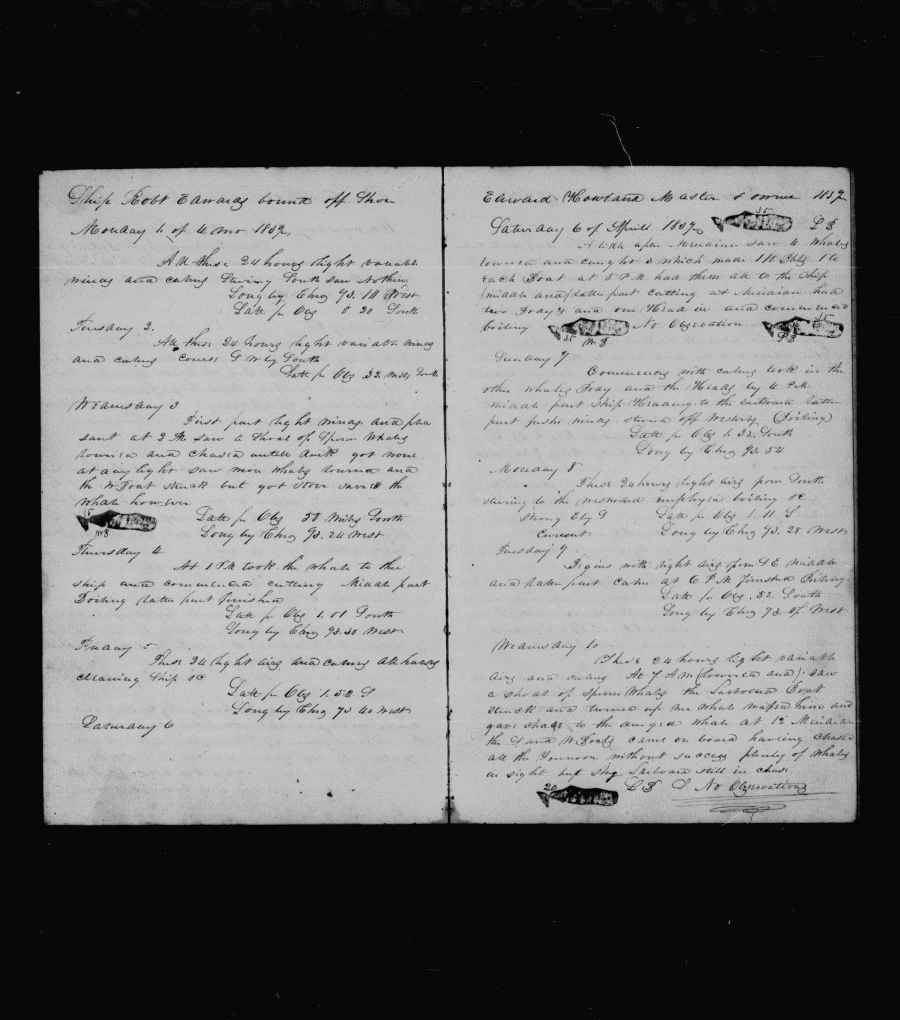 Ship Robt Edwards bound off Shore
Monday 1 of 4 mo 1839
All these 24 hours light variable
winds and calms Stering South saw Nothing
Long by Chro 93.14 West
Latt pr Obs 0 20 South
Tuesday 2.
All these 24 hours light variable winds
and calms course S W by South
Latt pr Obs 32 miles South
Wednsday 3
First part light winds and plea
sant at 2 PM saw a Shoal of Sperm Whales
lowered and chased untill dark got none
at day light saw more whales lowered and
the W Boat struck but got stove saved the
whale however
15
WB
Latt pr Obs 58 Miles South
Long by Chro 93.24 West
Thursday 4
At 1 PM took the whale to the
ship and commenced cutting Middle part
Boiling latter part finished
Latt pr Obs 1.01 South
Long by Chro 93.30 West
Friday 5
These 24 light airs and calms all hands
cleaning Ship &c
Latt pr Obs 1.52 S
Long by Chro 93 40 West
Saturday 6
Edward Howland Master & owner 1839
Saturday 6 of Aprill 1839
35
LB
A little after Meridian saw 4 whales
lowered and caught 3 which made 110 Bbls 1 to
each Boat at 5 PM had them all to the Ship
middle and latter part cutting at Meridian had
two Boays and one Head in and commenced
boiling
35
WB
No Observation
SB
Sunday 7
Commences with calms took in the
other whales Boay and the Heads by 4 PM
middle part ship Heading to the Eastward latter
part fresh winds stered off Westerly (Boiling)
Latt pr Obs 1.32 South
Long by Chro 93.54
Monday 8
These 24 hours light airs from South
stering to the westward employed in boiling &c
strong Etly
current
Latt pr Obs 1.11 S
Long by Chro 93.28 West
Tuesday 9
Begins with light airs from SE middle
and latter part calm at 6 PM finished Boiling
Latt pr Obs .52 South
Long by Chro 93.07 West
Wednsday 10
These 24 hours light variable
airs and calms At 7 AM (lowered and) saw
a shoal of sperm Whales the Larboard Boat
struck and turned up one whale waifed him and
gave chase to the whale at 12 Meridian
the S and W Boats came on board having chased
all the Fournoon without success plenty of Whales
in sight but Larboard still in chase
20
LB
No Observations